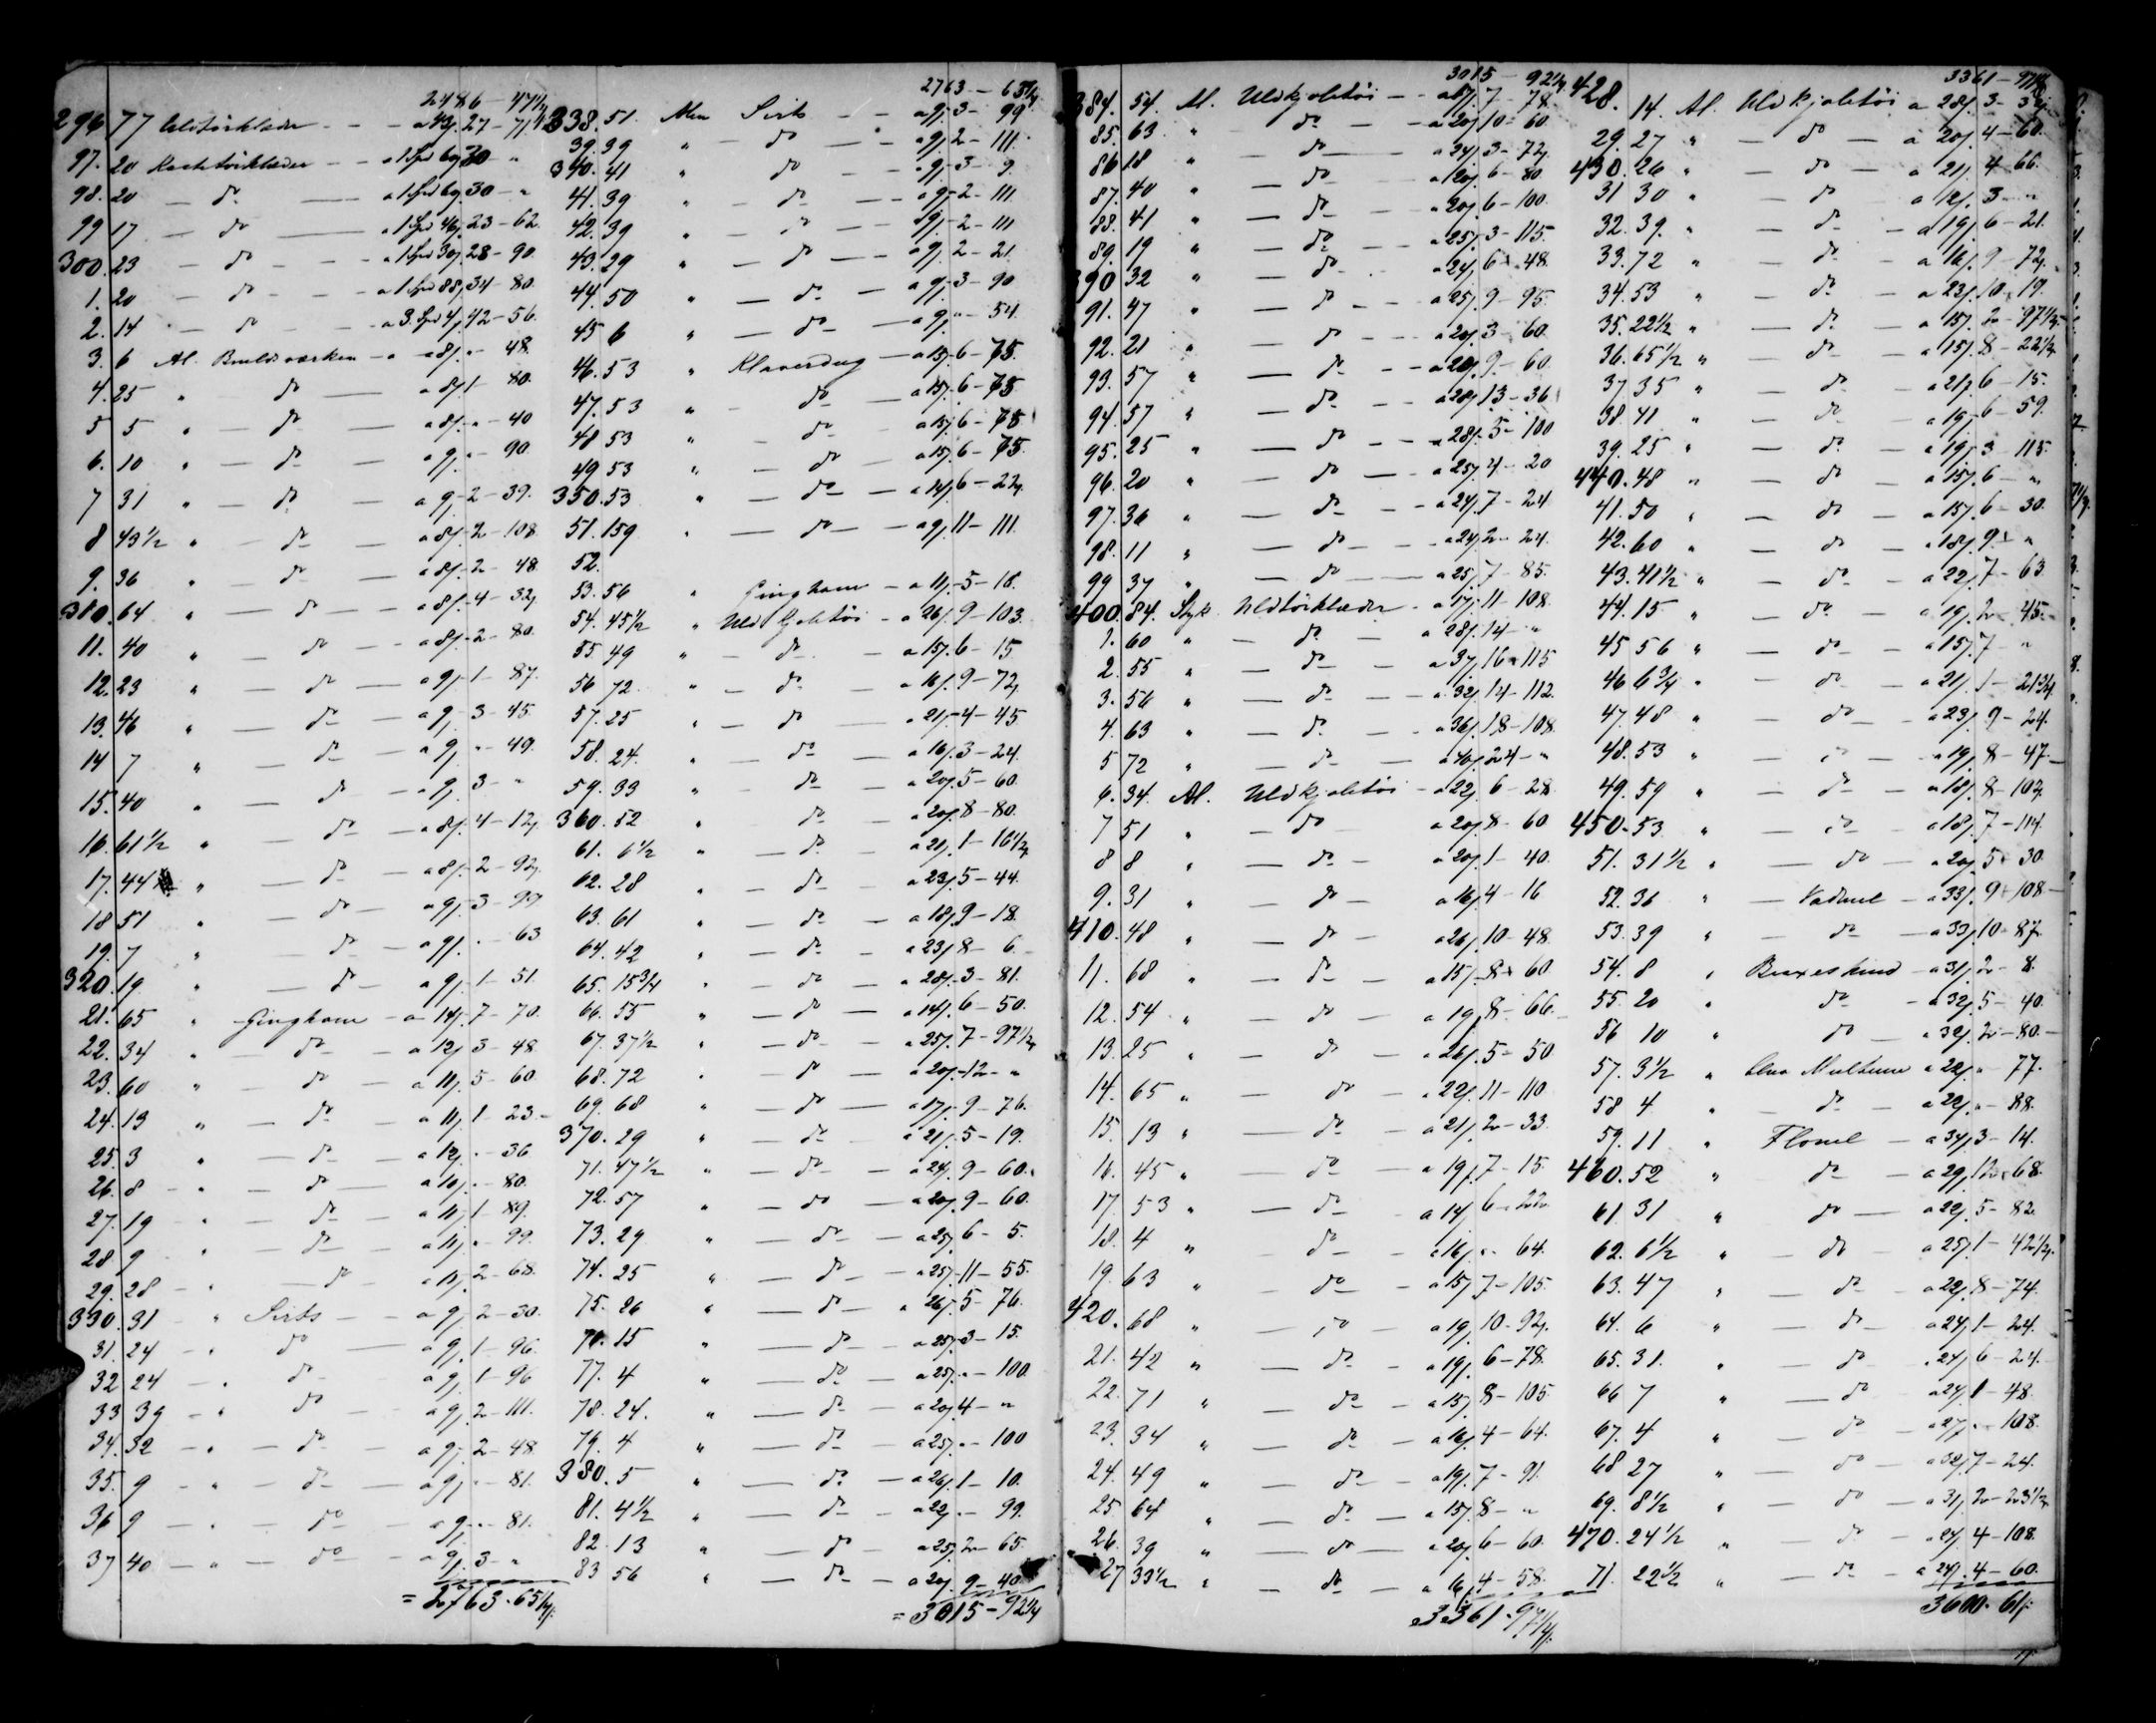 2486 - 47 1/4
296 77 Uldtörklæder - - a 43/. 27 - 71
97. 20 Kachtörklæder - - a 1 Spd 60/. 30 - "
98. 20 - do - a 1 Spd 60/. 30 - "
99 17 - do - a 1 Spd 46/. 23 - 62.
300. 23 - do - a 1 Spd 30/. 28 - 90.
1. 20 - do - a 1 Spd 88/. 34 - 80.
2. 14 - do - 42 - 56.
3. 6 Al. Bomldsværken - a 8/. " 48.
4. 25 " do - a 8/. 1 - 80.
5 5 " - do - a 8/. " - 40
6. 10 " - do - a 9/. " - 90.
7 31 " - do - a 9/. 2 - 39.
8 43 1/2 " - do - a 8/. 2 - 108
9. 36 " - do - a 8/. 2 - 48.
310. 64 " - do - a 8/. 4 - 32/.
11. 40 " - do - a 8/. 2 - 80.
12. 23 " - do - a 9/. 1 - 87.
13. 46 " - do - a 9/. 3 - 45.
14 7 " - do - a 9/. " - 49.
15. 40 " - do - a 9/. 3 - "
16. 61 1/2 " - do - a 8/. 4 - 12/.
17. 44 " - do - a 8/. 2 - 92/.
18 51 " - do - a 9/. 3 - 99
19. 7 " - do - a 9/. " - 63
320. 19 " - do - a 9/. 1 - 51.
21. 65 " Gingham - a 14/. 7 - 70.
22. 34 " - do - a 12/. 3 - 48.
23. 60 " - do - a 11/. 5 - 60.
24. 13 " - do - a 11/. 1 - 23.
25. 3 " - do - a 12/. " - 36
26. 8 " - do - a 10/. " - 80.
27. 19 " - do - a 11/. 1 - 89.
28 9 " - do - a 11/. " - 99.
29. 28 " - do - a 11/. 2 - 68.
330. 31 " Sirts - a 9/. 2 - 30.
31. 24 " do - a 9/. 1 - 96.
32 24 " do - a 9/. 1 - 96
33 39 " do - a 9/. 2 - 111.
34. 32 " - do - a 9/. 2 - 48.
35. 9 " - do - a 9/. " - 81.
36 9 " - do - a 9/. " - 81.
37 40 " - do - a 9/. 3 - "
= 2763 . 65 1/4
2763 - 65 1/4
338. 51. Alen Sirts - - a 9/. 3 - 99
39. 39 " - do - a 9/. 2 - 111.
340. 41 " do - a 9/. 3 - 9.
41. 39 " - do - a 9/. 2 - 111.
42. 39 " - do - a 9/. 2 - 111
43. 29 " - do - a 9/. 2 - 21.
44. 50 " - do - a 9/. 3 - 90
45 6 " - do - a 9/. " - 54.
46. 53 " Klaverdug - a 15/. 6 - 75.
47. 53 " - do - a 15/. 6 - 75
48 53 " - do - a 15/. 6 - 75
49 53 " - do - a 15/. 6 - 75.
350. 53 " - do - a 14/. 6 - 22/.
51. 159 " - do - a 9/. 11 - 111.
52.
53. 56 " Gingham - a 11/. 5 - 16.
54. 45 1/2 " Uld Kjoletöi - a 26/. 9 - 103.
55. 49 " - do - a 15/. 6 - 15
56 72 " - do - a 16/. 9 - 72/.
57. 25 " - do - a 21/. 4 - 45
58. 24. " - do - a 16/. 3 - 24.
59. 33 " - do - a 20/. 5 - 60.
360. 52 " do - a 20/. 8 - 80.
61. 6 1/2 " - do - a 21/. 1 - 16 1/2
62. 28 " - do - a 23/. 5 - 44.
63. 61 " - do - a 18/. 9 - 18.
64. 42 " - do - a 23/. 8 - 6.
65. 15 3/4 " - do - a 28/. 3 - 81.
66. 55 " - do - a 14/. 6 - 50.
67. 37 1/2 " - do - a 25/. 7 - 97 1/2
68. 72 " - do - a 20/. 12 - "
69. 68 " - do - a 17/. 9 - 76.
370. 29 " - do - a 21/. 5 - 19.
71. 47 1/2 " - do - a 24/. 9 - 60.
72. 57 " - do - a 20/. 9 - 60.
73. 29 " - do - a 25/. 6 - 5.
74. 25 " - do - 11 - 55.
75. 26 " - do - a 26/. 5 - 76.
76. 15 " - do - a 25/. 3 - 15.
77. 4 " - do - a 25/. " - 100.
78. 24. " - do - a 20/. 4 - "
79. 4 " - do - a 25/. " - 100
380. 5 " - do - a 26/. 1 - 10.
81. 4 1/2 " - do - a 22/. " - 99.
82. 13 " - do - a 25/. 2 - 65.
83 56 " - do - a 20/. 9 - 40.
= 3015 - 92 1/4
3015 - 92 1/4
384. 54. Al. Uldkjoletöi - 7 - 78.
85. 63. " do - a 20/. 10 - 60.
86 18 " - do - a 24/. 3 - 72/.
87. 40 " - do - a 20/. 6 - 80
88. 41 " - do - a 20/. 6 - 100.
89. 19 " - do - a 25/. 3 - 115.
390 32 " - do - a 24/. 6 - 48.
91. 47 " - do - a 25/. 9 - 95.
92. 21 " - do - a 20/. 3 - 60.
93. 57 " - do - a 20/. 9 - 60.
94. 57 " - do - a 28/. 13 - 36
95. 25 " - do - a 28/. 5 - 100
96. 20 " - do - a 25/. 4 - 20
97. 36 " - do - a 24/. 7 - 24
98. 11 " - do - a 24/. 2 - 24.
99 37 " - do - a 25/. 7 - 85.
400. 84. Styk. Uldtörklæder - a 17/. 11 - 108.
1. 60 " - do - a 28/. 14 - "
2. 55 " - do - a 37/. 16 - 115
3. 56 " - do - a 32/. 14 - 112.
4. 63 " - do - a 36/. 18 - 108.
5 72 " - do - a 40/. 24 - "
6. 34. Al. Uldkjoletöi - a 22/. 6 - 28.
7 51 " - do a 20/. 8 - 60
8 8 " - do - a 20/. 1 - 40.
9. 31 " - do - a 16/. 4 - 16
410. 48 " - do - a 26/. 10 - 48.
11. 68 " - do - a 15/. 8 - 60
12. 54 " - do - a 19/. 8 - 66.
13. 25 " - do - a 26/. 5 - 50
14. 65 " - do - a 22/. 11 - 110
15. 13 " - do - a 21/. 2 - 33.
16. 45 " - do - a 19/. 7 - 15.
17. 53 " - do - a 14/. 6 - 22
18. 4 " - do - a 16/. " 64.
19. 63 " - do - a 15/. 7 - 105.
420. 68 " - do - a 19/. 10 - 92/.
21. 42 " - do - a 19/. 6 - 78.
22. 71 " do - a 15/. 8 - 105
23. 34 " - do - a 16/. 4 - 64.
24. 49 " - do - a 19/. 7 - 91.
25 64 " - do - a 15/. 8 - "
26. 39 " - do - a 20/. 6 - 60.
27 33 1/2 " - do - a 16/. 4 - 58.
3361 - 97 1/4
3361 - 97 1/4
428. 14 Al. Uldkjoletöi a 28/. 3 - 32/.
29. 27 " - do - a 20/. 4 - 60.
430. 26 " - do - a 21/. 4 - 66.
31 30 " - do a 12/. 3 - "
32. 39. " - do - a 19/. 6 - 21.
33. 72 " - do - a 16/. 9 - 72/.
34. 53 " - do - a 23/. 10 - 19.
35. 22 1/2 " - do - a 15/. 2 - 97 1/2
36. 65 1/2 " - do - a 15/. 8 - 22 1/2
37 35 " - do - a 21/. 6 - 15.
38 41 " - do - a 19/. 6 - 59.
39. 25 " - do - a 19/. 3 - 115.
440. 48 " - do - a 15/. 6 - "
41. 50 " - do - a 15/. 6 - 30.
42. 60 " - do - a 18/. 9 - "
43. 41 1/2 " - do - a 22/. 7 - 63
44. 15 " - do - a 19/. 2 - 45.
45 56 " - do - a 15/. 7 - "
46 6 3/4 " - do - a 21/. 1 - 21 3/4
47. 48 " - do - a 23/. 9 - 24.
48. 53 " - do - a 19/. 8 - 47.
49. 59 " - do - a 18/. 8 - 102
450. 53 " - do - a 18/. 7 - 114.
51. 31 1/2 " - do - a 20/. 5 - 30
52. 36 " - Vadmel - a 33/. 9 - 108
53. 39 " - do - a 33/. 10 - 87
54. 8 " Buxeskind - a 31/. 2 - 8.
55. 20 " do - a 32/. 5 - 40.
56 10 " do - a 32/. 2 - 80.
57. 3 1/2 " Multum a 22/. " 77.
58 4 " - do - a 22/. " - 88.
59. 11 " Flonel - a 34/. 3 - 14.
460. 52 " do - a 29/. 12 - 68.
61 31 " do - a 22/. 5 - 82
62. 6 1/2 " - do a 25/. 1 - 42 1/2
63. 47 " - do - a 22/. 8 - 74.
64. 6 " - do - a 24/. 1 - 24.
65. 31. " - do a 24/. 6 - 24.
66 7 " - do a 24/. 1 - 48.
67. 4 " - do - a 27/. " 108.
68 27 " - do - a 32/. 7 - 24.
69. 8 1/2 " - do - a 31/. 2 - 23 1/2
470. 24 1/2 " - do - a 24/. 4 - 108.
71. 22 1/2 " - do - a 24/. 4 - 60.
3600 . 61/.